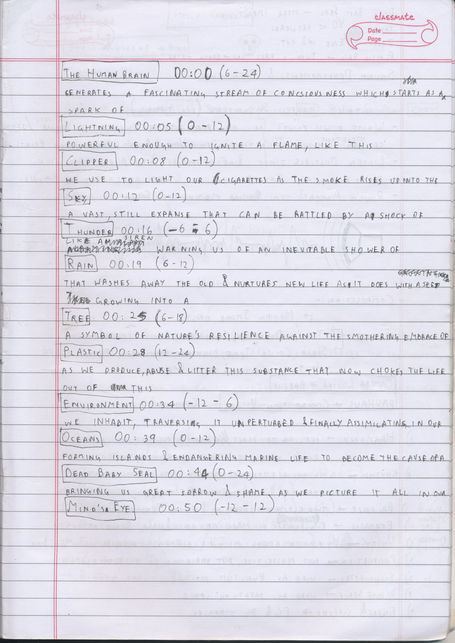 classmate
Date
Page
THE HUMAN BRAIN 00:00 (6-24)
GENERATES A FASCINATING STREAM OF CONCSIOUSNESS WHICH STARTS AS A
SPARK OF
LIGHTNING 00:05 (0-12)
POWERFUL ENOUGH TO IGNITE A FLAME, LIKE THIS
CLIPPER 00:08 (0-12)
WE USE TO LIGHT OUR CIGARETTES AS THE SMOKE RISES UP INTO THE
SKY 00:12 (0-12)
A VAST, STILL EXPANSE THAT CAN BE RATTLED BY A SHOCK OF
THUNDER 00:16 (-6 - 6)
SIREN
LIKE A
WARNING US OF AN INEVITABLE SHOWER OF
RAIN 00:19 (6-12)
THAT WASHES AWAY THE OLD & NURTURES NEW LIFE AS IT DOES WITH A
GROWING INTO A
TREE 00:25 (6-18)
A SYMBOL OF NATURE'S RESILIENCE AGAINST THE SMOTHERING EMBRACE OF
PLASTIC 00:28 (12-24)
AS WE PRODUCE, ABUSE & LITTER THIS SUBSTANCE THAT NOW CHOKES THE LIFE
OUT OF THIS
ENVIRONMENT 00:34 (-12 - 6)
WE INHABIT, TRAVERSING IT UNPERTURBED & FINALLY ASSIMILATING IN OUR
OCEANS 00:39 (0-12)
FORMING ISLANDS & ENDANGERING MARINE LIFE TO BECOME THE CAUSE OF A
DEAD BABY SEAL 00:44 (0-24)
BRINGING US GREAT SORROW & SHAME, AS WE PICTURE IT ALL IN OUR
MIND'S EYE 00:50 (-12 - 12)